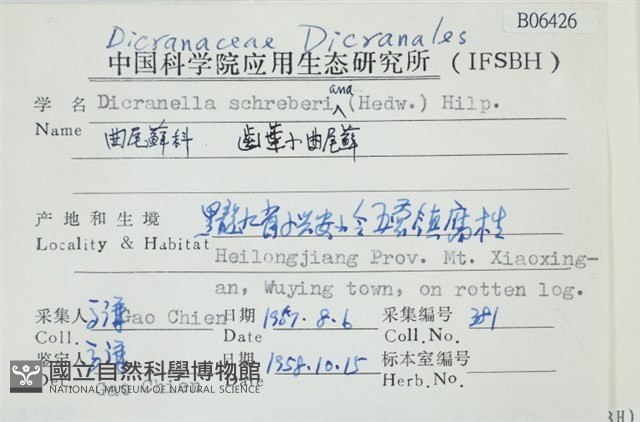 B06426
Dicranaceae Dicranales
中国科学院应用生态研究所 (IFSBH)
学名 Dicranella schreberiana (Hedw.) Hilp.
Name 曲尾蘚科 齒葉小曲尾蘚
产地和生境 黑龙江省小兴安岭五营镇腐木
Locality & Habitat Heilongjiang Prov. Mt. Xiaoxing-
an, Wuying town, on rotten log.
采集人 Gao Chien 日期 8.6 采集编号 381
Coll. Date Coll.No.
鉴定人 日期 1958.10.15 标本室编号
Gao Chien Date Herb.No.
國立自然科學博物館
NATIONAL MUSEUM OF NATURAL SCIENCE
BH)